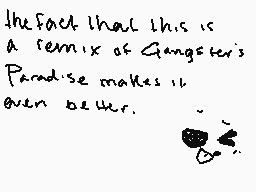 the fact that this is
a remix of Gangster's
Paradise makes it
even better.